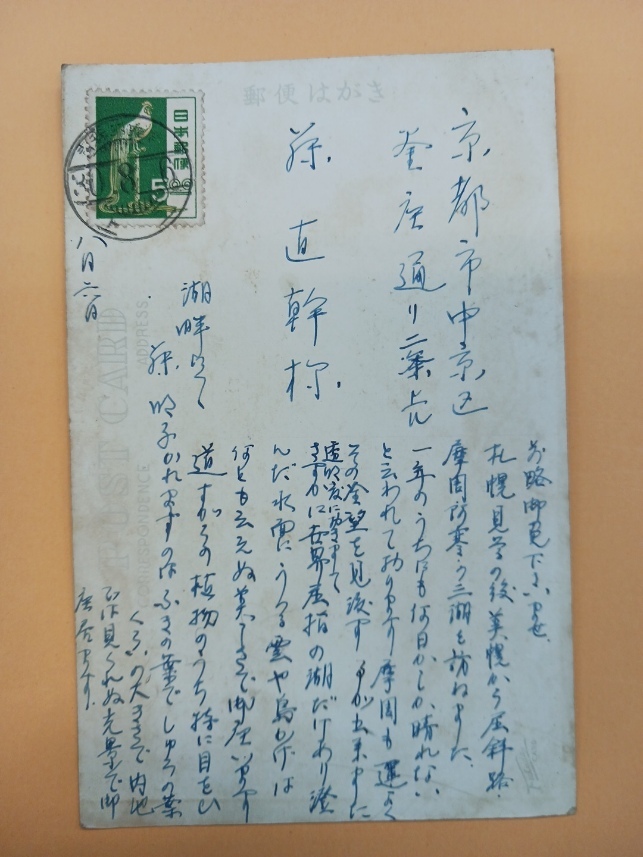 郵便はがき
日本郵便
5.00
京都市中京区
釜座通り二条上ル
孫 直幹様
前略御免下さいませ
札幌見学の後美幌から屈斜路、
摩周阿寒の三湖を訪ねました。
一年のうちにも何日かしか晴れない
と云われて居ります摩周も運よく
その全望を見渡す事が出来ました
透明度に於きまして
さすがに世界屈指の湖だけあり澄
んだ水面にうつる雲や島かげは
何とも云えぬ美しさで御座います
道すがらの植物のうち特に目をひ
かれますのはふきの葉でしゆろの葉
くらいの大きさで内地
では見られぬ光景で御
座居ます。
湖畔にて
孫
八月六日
POST CARD
CORRESPONDENCE
ADDRESS